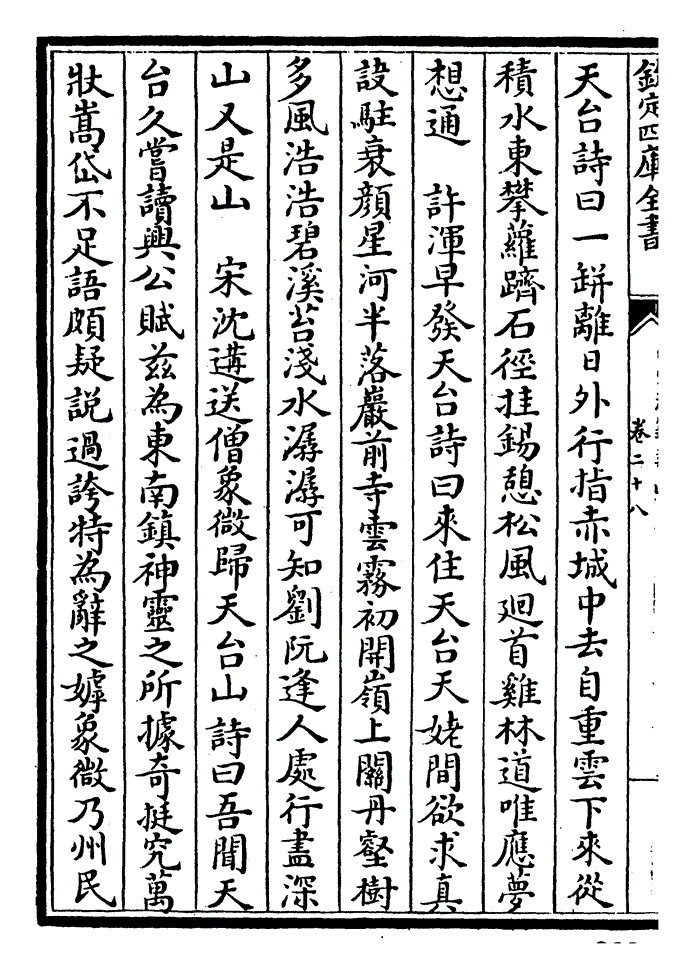 欽定四庫全書
卷二十八
天台詩曰一缾離日外行指赤城中去自重雲下來從
積水東攀蘿躋石徑挂錫憩松風廻首雞林道唯應夢
想通　許渾早發天台詩曰來住天台天姥間欲求真
設駐衰顔星河半落巖前寺雲霧初開嶺上關丹壑樹
多風浩浩碧溪苔淺水潺潺可知劉阮逢人處行盡深
山又是山　宋沈遘送僧象微歸天台山詩曰吾聞天
台久嘗讀興公賦兹為東南鎮神靈之所據奇挺究萬
狀嵩岱不足語頗疑説過誇特為辭之嫭象微乃州民